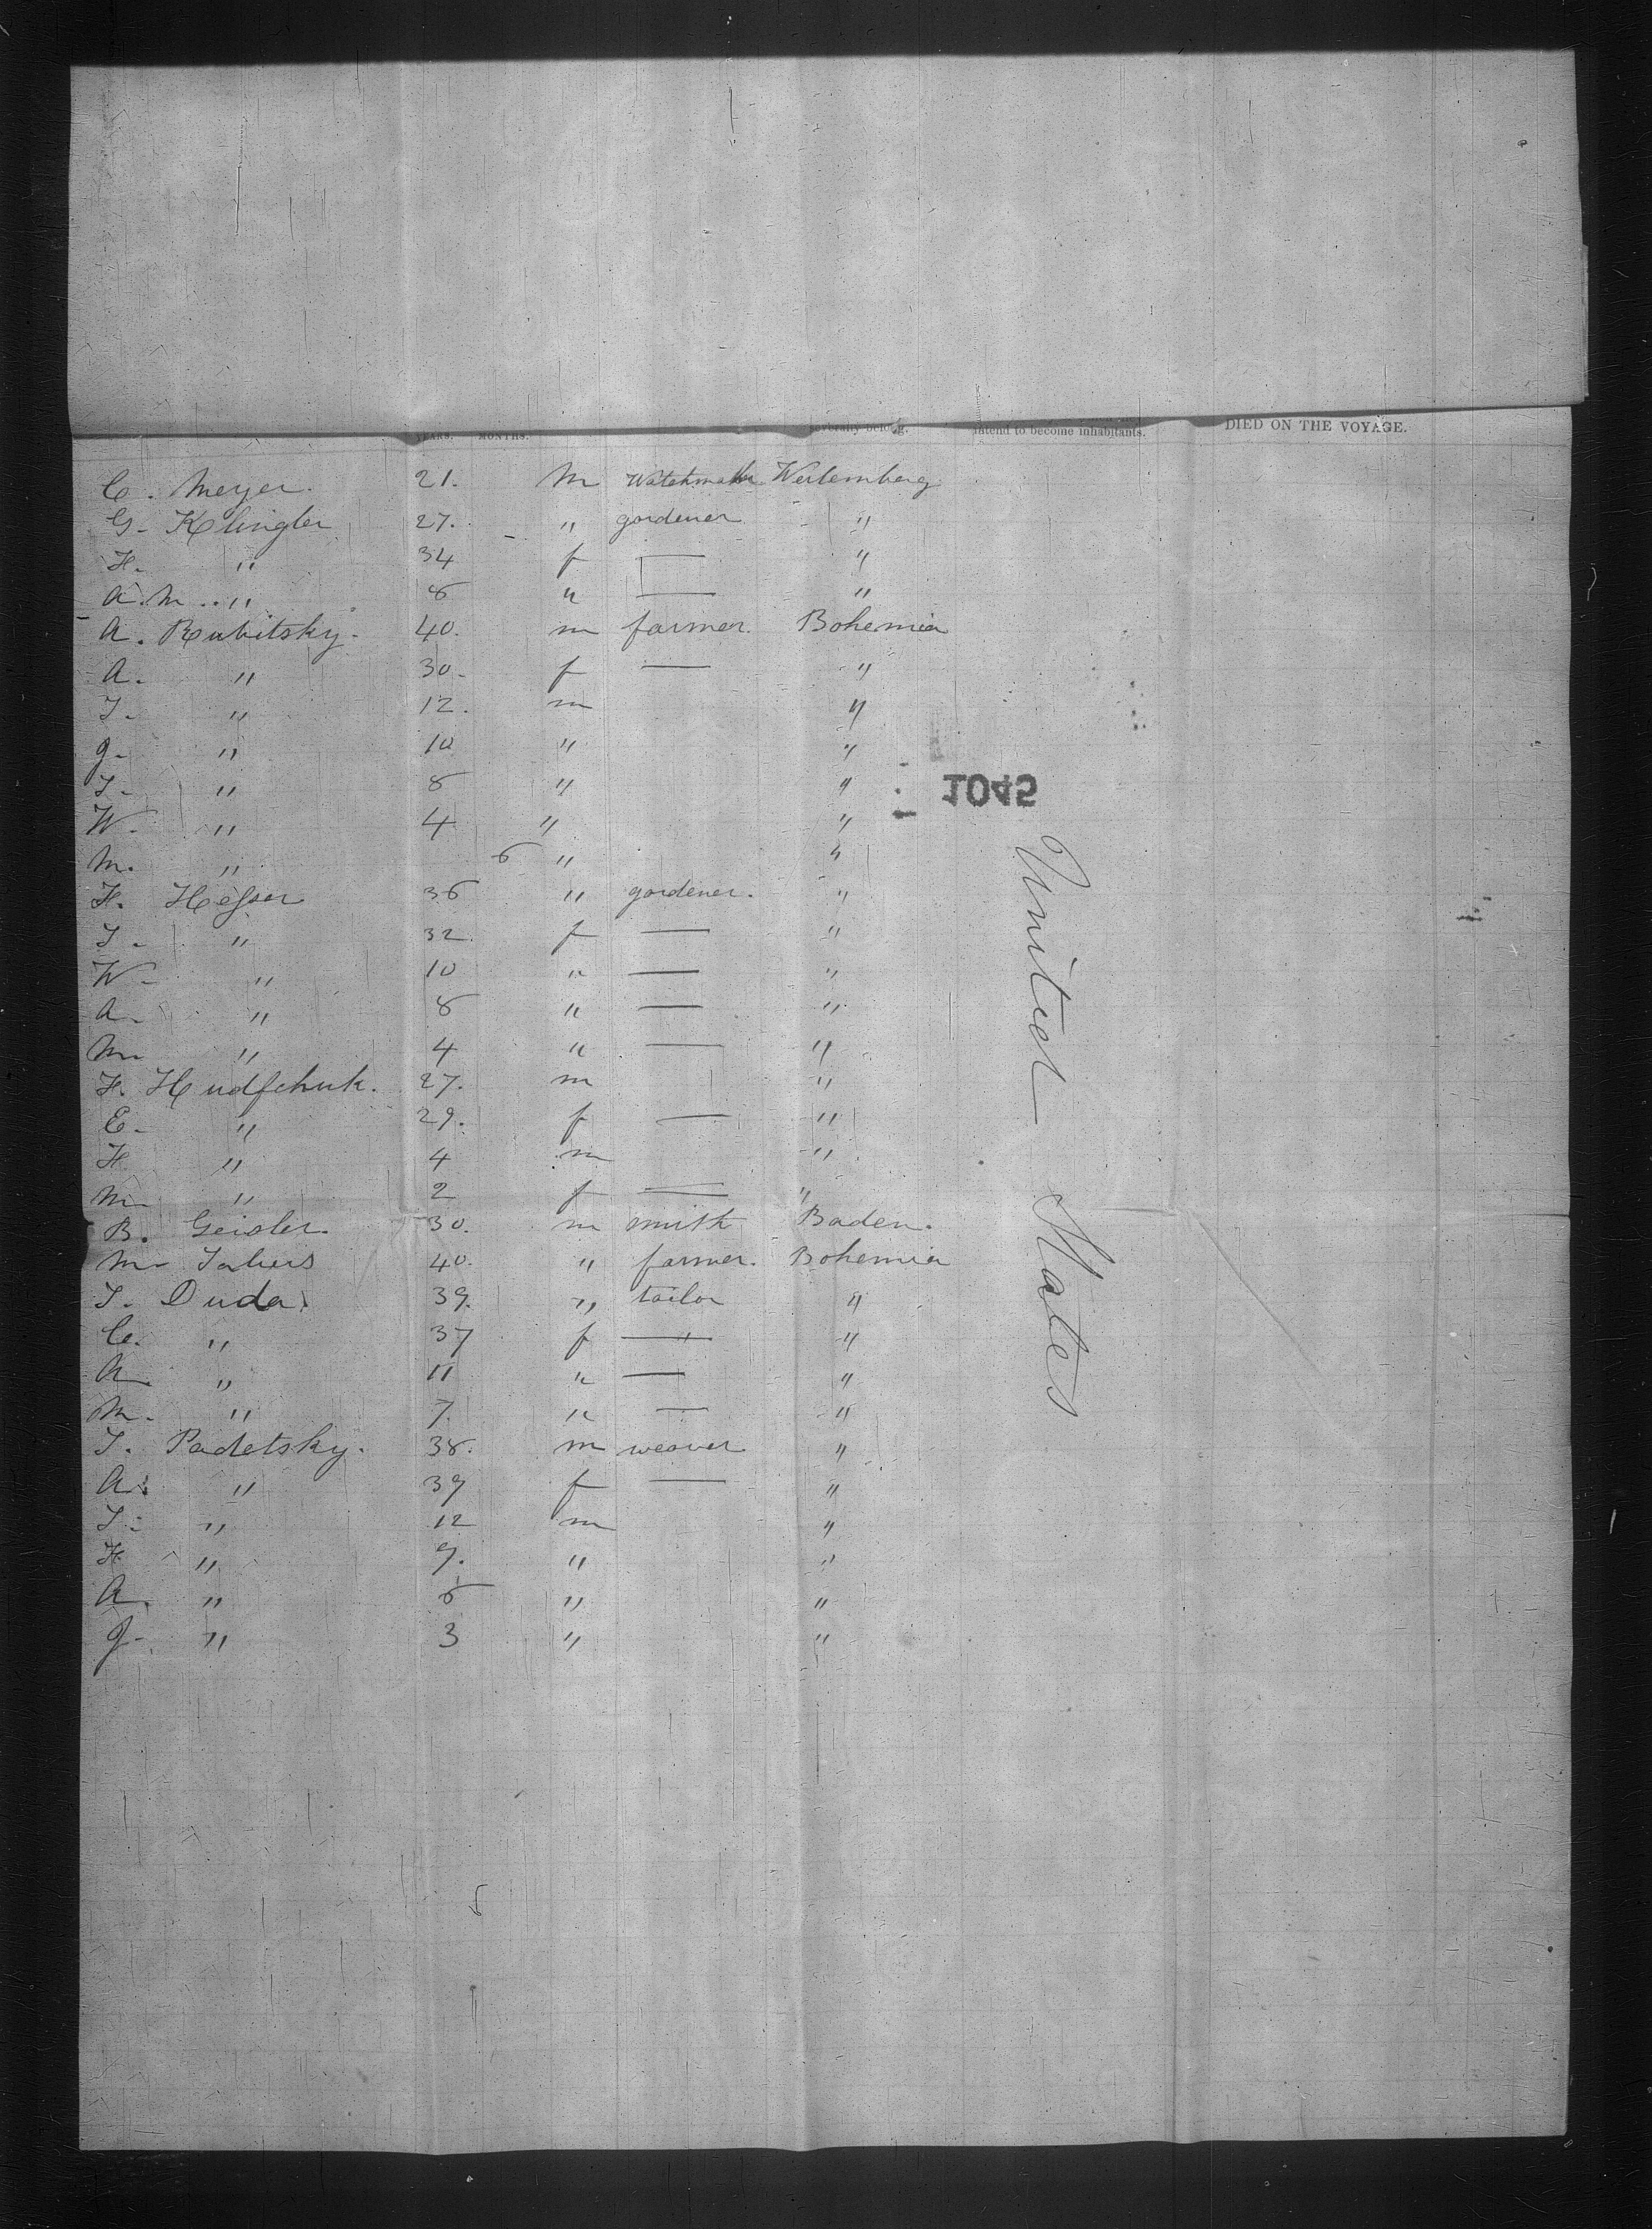 YEARS. MONTHS. severally belong. intend to become inhabitants. DIED ON THE VOYAGE.
C. Meyer. 21. M Watchmaker Wertemberg
G. Klingler 27. " gardener "
H. " 34 f — "
A.M. " 8 " — "
A. Rubitsky. 40. m farmer. Bohemia
A. " 30. f — "
J. " 12. m "
G. " 10 " "
J. " 8 " "
W. " 4 " "
M. " 6 " "
F. Hesser 36 " gardener. "
J. " 32. f — "
W. " 10 " — "
A. " 8 " — "
M. " 4 " — "
F. Hudschuk. 27. m "
E. " 29. f — "
H. " 4 m "
M. " 2 f — "
B. Geisler. 30. m smith Baden.
M. 40. " farmer. Bohemia
J. Duda. 39. " tailor "
C. " 37 f — " "
A. " 11 " — "
M. " 7. " — "
J. Padetsky. 38. m weaver "
A. " 39 f — "
J. " 12 m "
F. " 9. " "
A. " 6 " "
G. " 3 " "
1045
United States